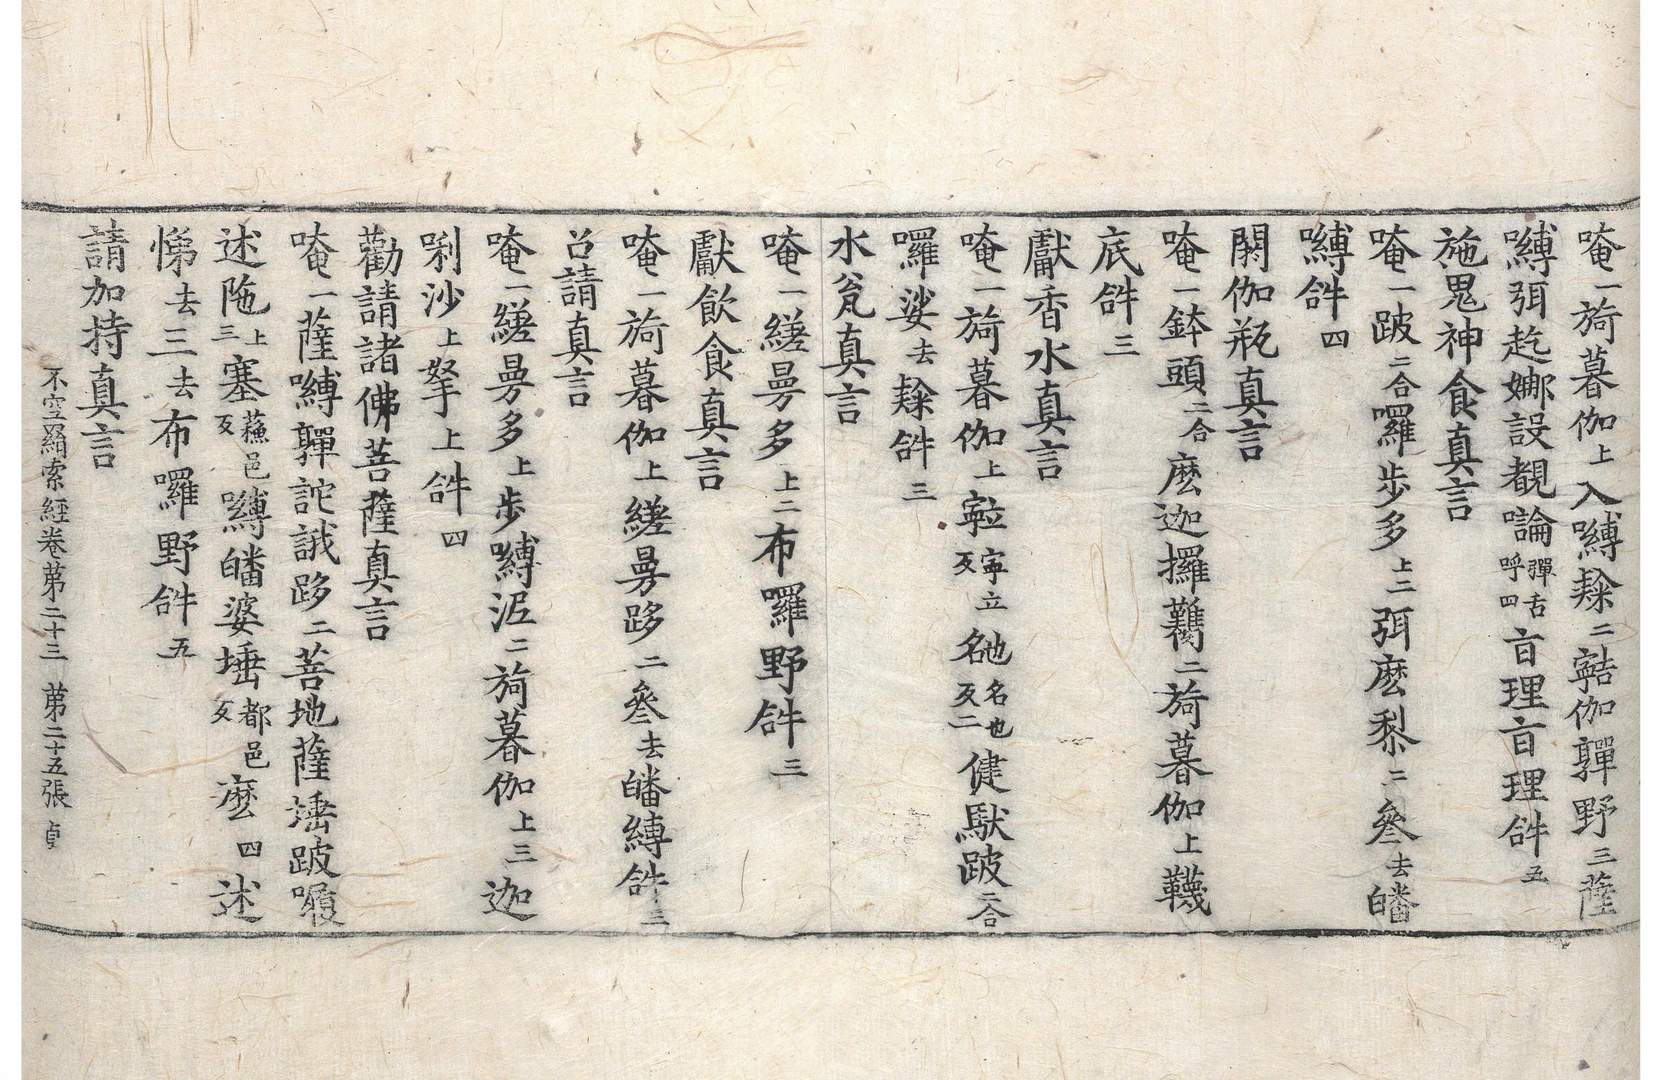 唵一旖暮伽上入嚩𪍿二𡫸伽鸅野三薩
嚩弭趁娜設覩嚕彈舌呼四盲理盲理𤙖五
施鬼神食真言
唵一跛二合囉步多上二弭麼黎二叄去皤
嚩𤙖四
閼伽瓶真言
唵一鉢頭二合麼迦攞䩭二旖暮伽上韈
底𤙖三
獻香水真言
唵一旖暮伽上𡫸寧立名也名也反二健馱跛二合
囉娑去𪍿𤙖三
水瓮真言
唵一縒曼多上二布囉野𤙖三
獻飲食真言
唵一旖暮伽上縒曼跢二叄去皤縛𤙖三
召請真言
唵一縒曼多上步嚩泥二旖暮伽上三迦
唎沙上拏上𤙖四
勸請諸佛菩薩真言
唵一薩嚩嚲詑誐跢二菩地薩埵跛嚩
述陁上三塞蘓邑反嚩皤婆埵都邑反麽四述
悌去三去布囉野𤙖五
請加持真言
不空羂索經卷苐二十三 苐二十五張 貞